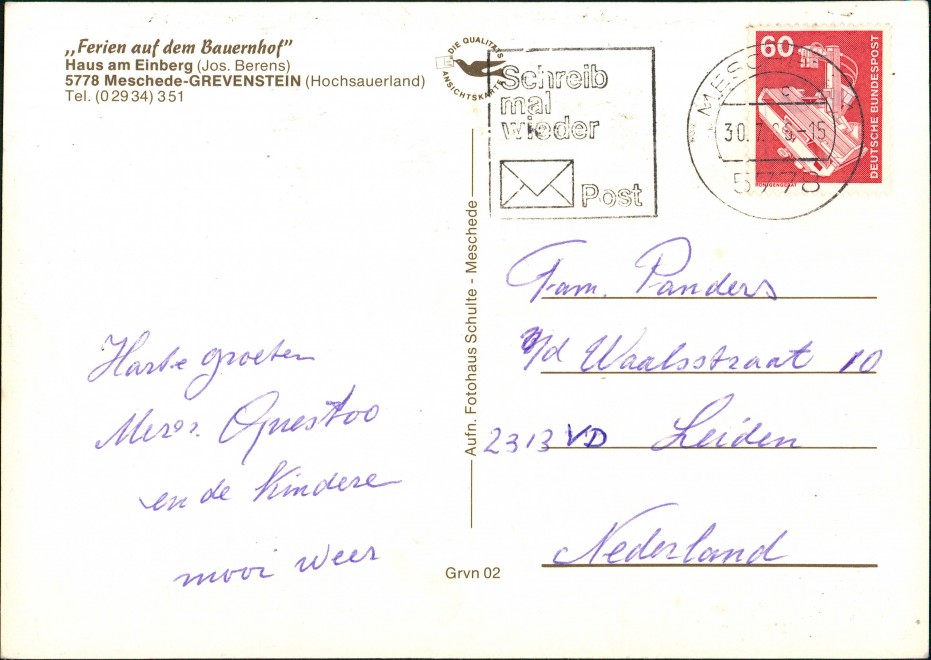 „Ferien auf dem Bauernhof"
Haus am Einberg (Jos. Berens)
5778 Meschede-GREVENSTEIN (Hochsauerland)
Tel. (0 29 34) 3 51
DIE QUALITÄTS
ANSICHTSKARTE
Schreib
mal
wieder
Post
60
DEUTSCHE BUNDESPOST
RÖNTGENGERÄT
30.7.
-15
5778
Aufn. Fotohaus Schulte - Meschede
Harte groeten
en de Kindere
mooi weer
Fam. Panders
v/d Waalsstraat 10
2313 VD Leiden
Nederland
Grvn 02